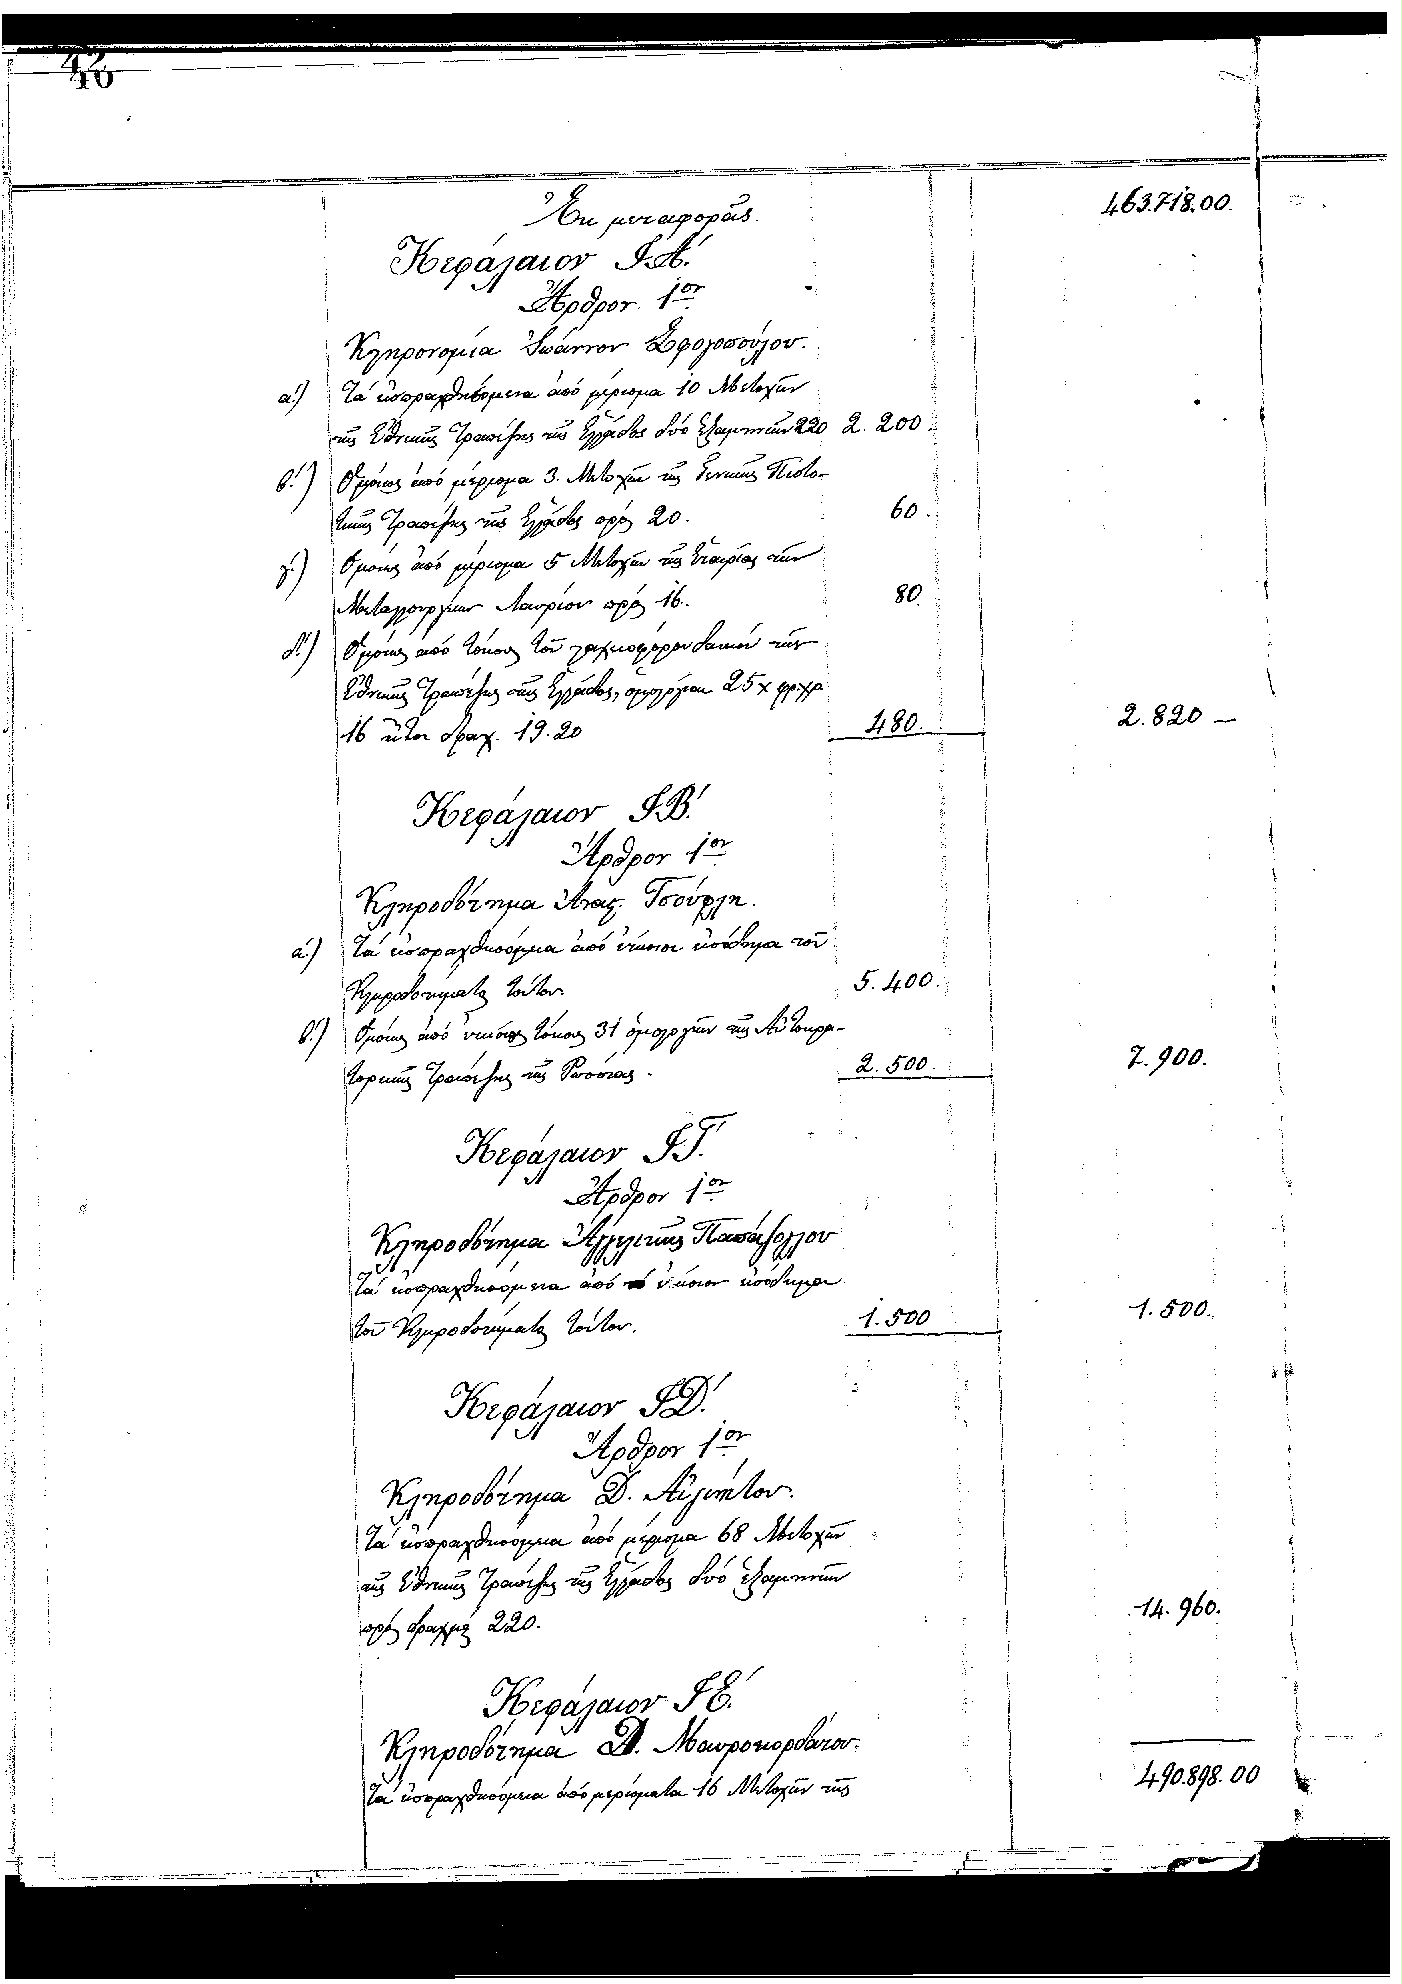 42
40
Ἐκ μεταφορᾶς. 463.718.00.
Κεφάλαιον Ι.Α΄.
Ἄρθρον 1ον
Κληρονομία Ἰωάννου
α΄.) Τὰ εἰσπραχθησόμενα ἀπὸ μέρισμα 10 Μετοχῶν
τῆς Ἐθνικῆς Τραπέζης τῆς Ἑλλάδος δύο ἑξαμηνιῶν 220 2.200.
β΄.) Ὁμοίως ἀπὸ μέρισμα 3. Μετοχῶν τῆς Γενικῆς Πιστω-
τικῆς Τραπέζης τῆς Ἑλλάδος πρὸς 20. 60.
γ΄.) Ὁμοίως ἀπὸ μέρισμα 5 Μετοχῶν τῆς Ἑταιρίας τῶν
Μεταλλουργείων Λαυρίου πρὸς 16. 80.
δ΄.) Ὁμοίως ἀπὸ τόκους τοῦ λαχειοφόρου δανείου τῆς
Ἐθνικῆς Τραπέζης τῆς Ἑλλάδος, ὁμολογίαι 25 χ φρ. χρ.
16 ἤτοι δραχ. 19.20 480. 2.820 —
Κεφάλαιον Ι.Β΄.
Ἄρθρον 1ον
Κληροδότημα Ἀναστ. Τσούφλη.
α΄.) Τὰ εἰσπραχθησόμενα ἀπὸ ἐτήσιον εἰσόδημα τοῦ
Κληροδοτήματος τούτου. 5.400.
β΄.) Ὁμοίως ἀπὸ ἐτησίους τόκους 31 ὁμολογιῶν τῆς Αὐτοκρα-
τορικῆς Τραπέζης τῆς Ρωσσίας. 2.500. 7.900.
Κεφάλαιον Ι.Γ΄.
Ἄρθρον 1ον
Κληροδότημα Ἀγγελικῆς Παπάζογλου
Τὰ εἰσπραχθησόμενα ἀπὸ ἐτήσιον εἰσόδημα
τοῦ Κληροδοτήματος τούτου. 1.500 1.500.
Κεφάλαιον Ι.Δ΄.
Ἄρθρον 1ον
Κληροδότημα Δ. Αἰγινήτου.
Τὰ εἰσπραχθησόμενα ἀπὸ μέρισμα 68 Μετοχῶν
τῆς Ἐθνικῆς Τραπέζης τῆς Ἑλλάδος δύο ἑξαμηνιῶν
πρὸς δραχμὰς 220. 14.960.
Κεφάλαιον Ι.Ε΄.
Κληροδότημα Δ. Μαυροκορδάτου.
Τὰ εἰσπραχθησόμενα ἀπὸ μερίσματα 16 Μετοχῶν τῆς
490.898.00